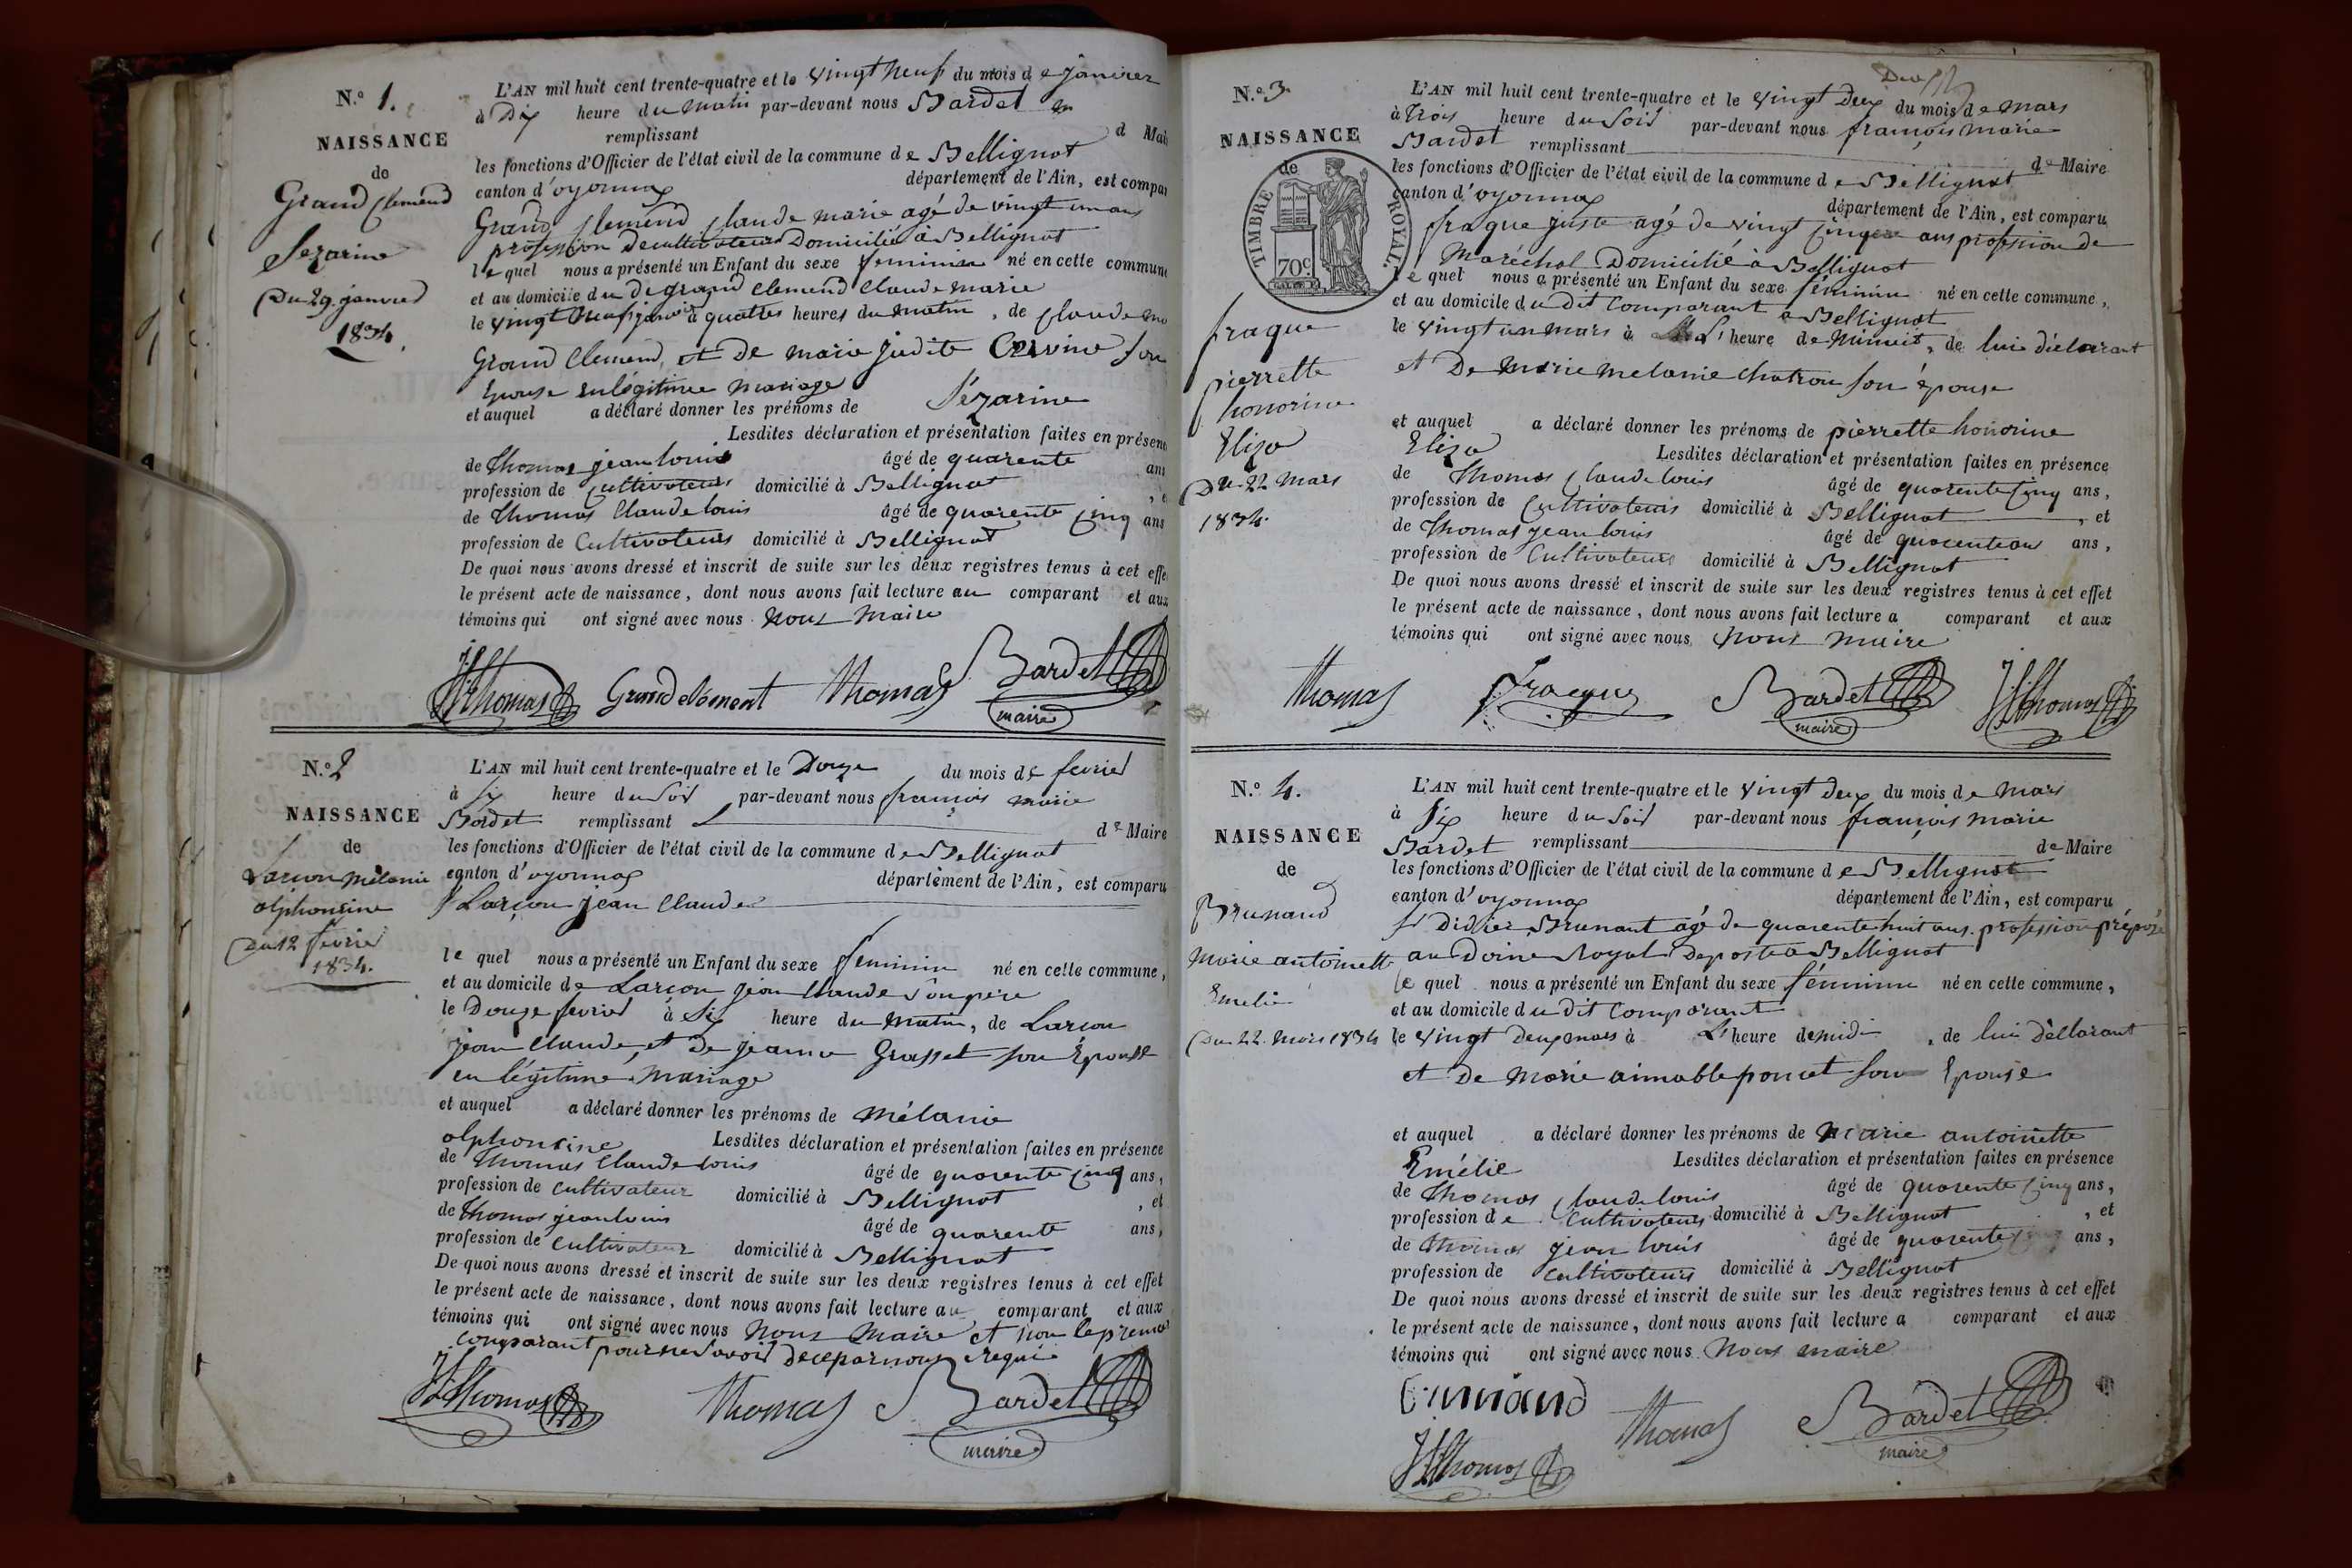 N.º 1.
NAISSANCE
de
Grand Clemend
Sezarine
Du 29 janvier
1834.
L'AN mil huit cent trente-quatre et le vingt neuf du mois de janvier
à Dix heure du matin par-devant nous Bardet
remplissant d Mai
les fonctions d'Officier de l'état civil de la commune de Bellignat
canton d'oyonnax département de l'Ain, est compar
Grand Clemend Claude marie agé de vingt un ans
profession de cultivateur Domicilié à Bellignat
le quel nous a présenté un Enfant du sexe feminin né en cette commune
et au domicile du De grand Clemend Claude marie
le vingt neuf janvier à quattre heures du matin, de Claude ma
Grand Clemend, et De marie judite son
Epouse en légitime mariage
et auquel a déclaré donner les prénoms de Sézarine
Lesdites déclaration et présentation faites en présenc
de Thomas jean louis âgé de quarente ans
profession de Cultivateur domicilié à Bellignat, e
de Thomas Claude louis âgé de quarente Cinq ans
profession de Cultivateur domicilié à Bellignat
De quoi nous avons dressé et inscrit de suite sur les deux registres tenus à cet effe
le présent acte de naissance, dont nous avons fait lecture au comparant et aux
témoins qui ont signé avec nous Nous Maire
JL Thomas Grand clément Thomas Bardet
maire
N.º 2
NAISSANCE
de
Larçon Mélanie
alphonsine
Du 12 fevrier
1834.
L'AN mil huit cent trente-quatre et le Douze du mois de fevrier
à six heure du soir par-devant nous françois marie
Bardet remplissant de Maire
les fonctions d'Officier de l'état civil de la commune de Bellignat
canton d'oyonnax département de l'Ain, est comparu
Larçon jean Claude
le quel nous a présenté un Enfant du sexe feminin né en cette commune,
et au domicile de Larçon jean Claude son père
le Douze fevrier à Six heure du matin, de Larçon
jean Claude, et De jeanne Grasset son Épouse
en légitime mariage
et auquel a déclaré donner les prénoms de Mélanie
alphonsine Lesdites déclaration et présentation faites en présence
de Thomas Claude louis âgé de quarente Cinq ans,
profession de cultivateur domicilié à Bellignat, et
de Thomas jean louis âgé de quarente ans,
profession de cultivateur domicilié à Bellignat
De quoi nous avons dressé et inscrit de suite sur les deux registres tenus à cet effet
le présent acte de naissance, dont nous avons fait lecture au comparant et aux
témoins qui ont signé avec nous Nous Maire et non le premier
comparant pour ne savoir de ce par nous requi
JL Thomas Thomas Bardet
maire
N.º 3
NAISSANCE
de
TIMBRE ROYAL.
70c
fraque
pierrette
honorine
Eliza
Du 22 Mars
1834.
L'AN mil huit cent trente-quatre et le vingt Deux du mois de mars
à Trois heure du Soir par-devant nous françois marie
Bardet remplissant de Maire
les fonctions d'Officier de l'état civil de la commune de Bellignat
canton d'oyonnax département de l'Ain, est comparu
fraque juste agé de vingt Cinq ans profession de
Maréchal Domicilié à Bellignat
le quel nous a présenté un Enfant du sexe féminin né en cette commune,
et au domicile du Dit Comparant à Bellignat
le vingt un mars à L'heure de Minuit, de lui déclarant
et De marie melanie Chatron son épouse
et auquel a déclaré donner les prénoms de pierrette honorine
Eliza Lesdites déclaration et présentation faites en présence
de Thomas Claude louis âgé de quarente Cinq ans,
profession de Cultivateur domicilié à Bellignat, et
de Thomas jean louis âgé de quarente ans ans,
profession de Cultivateur domicilié à Bellignat
De quoi nous avons dressé et inscrit de suite sur les deux registres tenus à cet effet
le présent acte de naissance, dont nous avons fait lecture a comparant et aux
témoins qui ont signé avec nous Nous maire
Thomas Fraque Bardet JL Thomas
maire
N.º 4.
NAISSANCE
de
Brunand
Marie antoinette
Emelie
Du 22 Mars 1834
L'AN mil huit cent trente-quatre et le vingt Deux du mois de Mars
à Six heure du Soir par-devant nous françois Marie
Bardet remplissant de Maire
les fonctions d'Officier de l'état civil de la commune de Bellignat
canton d'oyonnax département de l'Ain, est comparu
Didier Brunant agé de quarente huit ans profession préposé
au Doine Royal De poste à Bellignat
le quel nous a présenté un Enfant du sexe féminin né en cette commune,
et au domicile du dit Comparant
le vingt Deux mars à L'heure de midi, de lui déclarant
et De Marie aimable poncet son Epouse
et auquel a déclaré donner les prénoms de Marie antoinette
Emélie Lesdites déclaration et présentation faites en présence
de Thomas Claude louis âgé de quarente Cinq ans,
profession de Cultivateur domicilié à Bellignat, et
de Thomas jean louis âgé de quarente ans,
profession de cultivateur domicilié à Bellignat
De quoi nous avons dressé et inscrit de suite sur les deux registres tenus à cet effet
le présent acte de naissance, dont nous avons fait lecture a comparant et aux
témoins qui ont signé avec nous Nous maire
Brunand Thomas Bardet
maire
JL Thomas